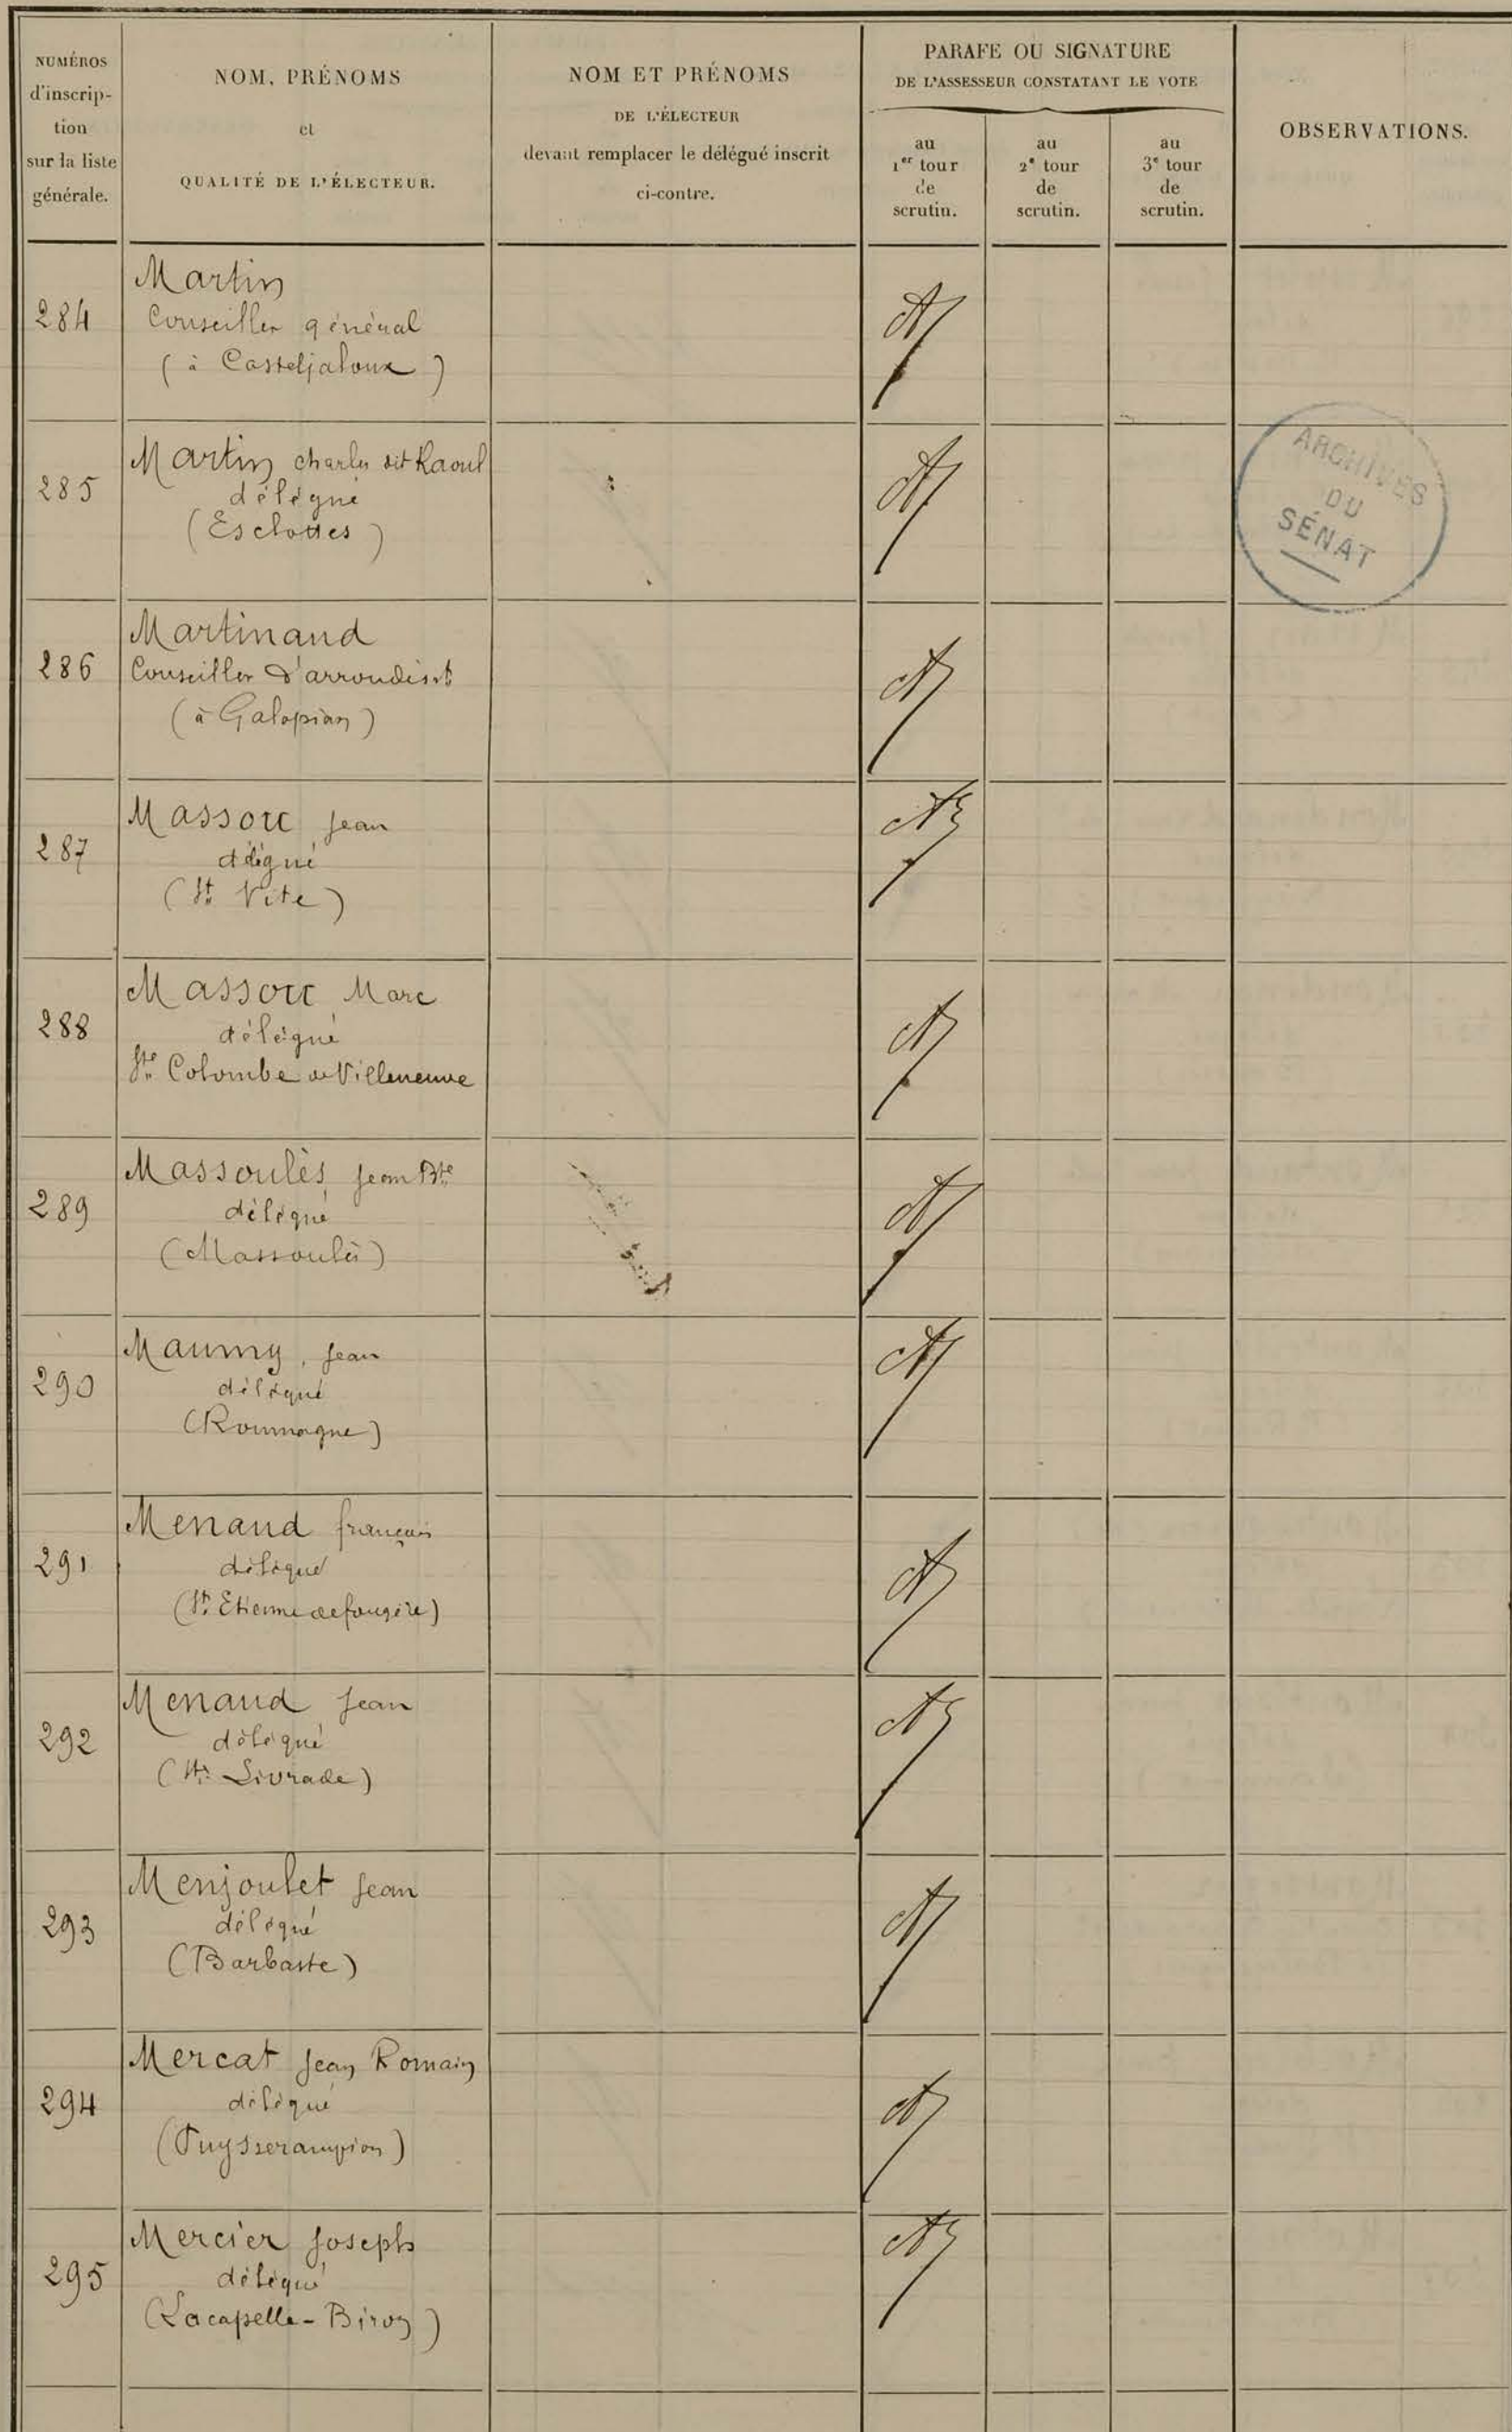 NUMÉROS
d'inscrip-
tion
sur la liste
générale.
NOM, PRÉNOMS
et
QUALITÉ DE L'ÉLECTEUR.
NOM ET PRÉNOMS
DE L'ÉLECTEUR
devant remplacer le délégué inscrit
ci-contre.
PARAFE OU SIGNATURE
DE L'ASSESSEUR CONSTATANT LE VOTE
au
1er tour
de
scrutin.
au
2e tour
de
scrutin.
au
3e tour
de
scrutin.
OBSERVATIONS.
284
Martin
Conseiller général
(à Casteljaloux)
285
Martin Charles dit Raoul
délégué
(Esclottes)
ARCHIVES
DU
SÉNAT
286
Martinaud
Conseiller d'arrondisst
(à Galapian)
287
Massou Jean
délégué
(St Vite)
288
Massou Marc
délégué
Ste Colombe de Villeneuve
289
Massoulès Jean Bte
délégué
(Massoulès)
290
Maumy, Jean
délégué
(Roumagne)
291
Menaud françois
délégué
(St Etienne de fougère)
292
Menaud Jean
délégué
(Ste Livrade)
293
Menjoulet Jean
délégué
(Barbaste)
294
Mercat Jean Romain
délégué
(Puysserampion)
295
Mercier Joseph
délégué
(Lacapelle-Biron)